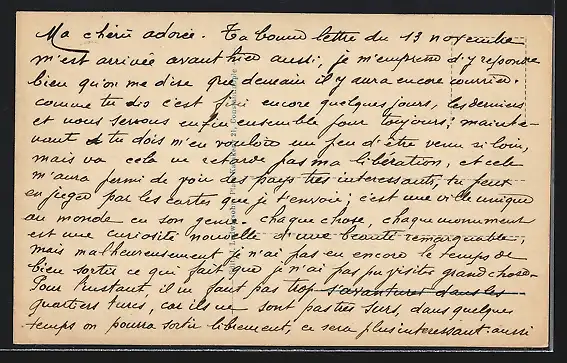 Ma chérie adorée. Ta bonne lettre du 13 novembre
m'est arrivée avant hier aussi, je m'empresse d'y repondre
bien qu'on me dise que demain il y aura encore courrier.
comme tu dis c'est fini encore quelques jours, les derniers
et nous serons enfin ensemble pour toujours; mainte-
nant tu dois m'en vouloir un peu d'être venu si loin,
mais va cela ne retarde pas ma libération, et cela
m'aura permi de voir des pays très interessants, tu peux
en juger par les cartes que je t'envoie; c'est une ville unique
au monde en son genre. chaque chose, chaque monument
est une curiosité nouvelle d'une beauté remarquable,
mais malheureusement je n'ai pas eu encore le temps de
bien sortir ce qui fait que je n'ai pas pu visiter grand chose.
Pour l'instant il ne faut pas trop s'aventurer dans les
quartiers turcs, car ils ne sont pas très surs, dans quelques
temps on pourra sortir librement, ce sera plus interessant aussi